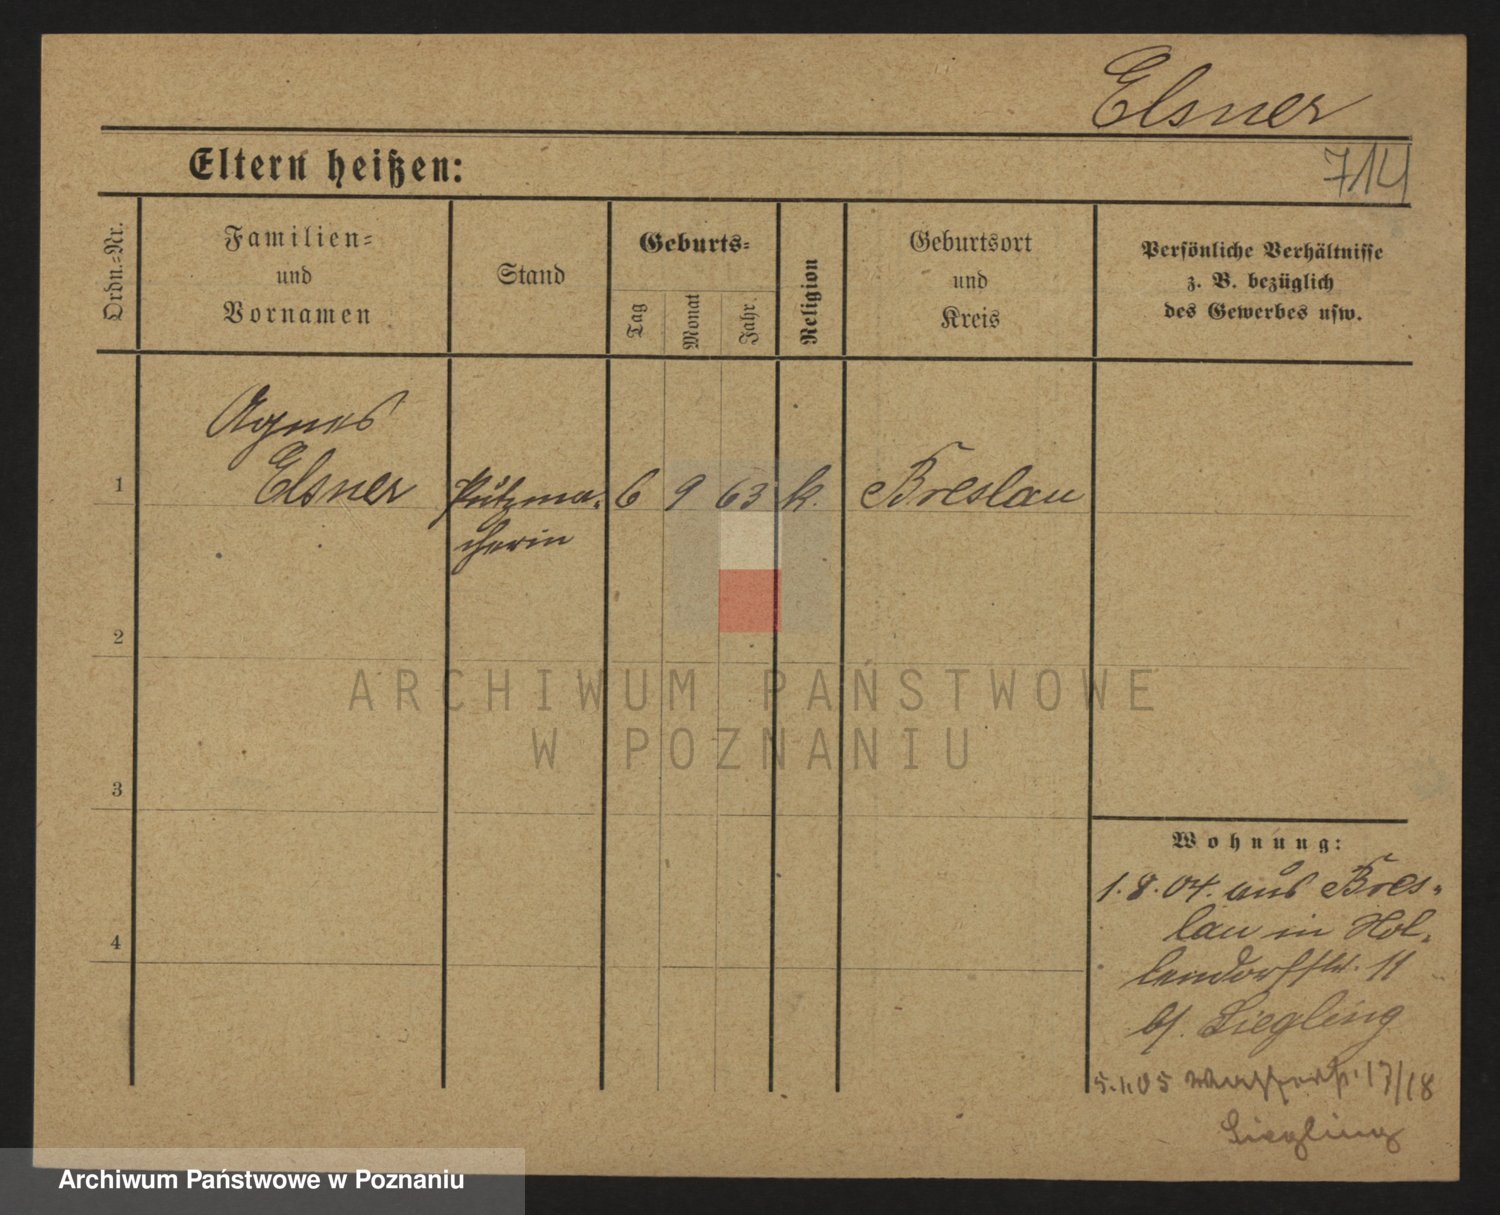 Elsner
714
Eltern heißen:
Ordn.-Nr.
Familien-
und
Vornamen
Stand
Geburts-
Tag
Monat
Jahr.
Religion
Geburtsort
und
Kreis
Persönliche Verhältnisse
z. B. bezüglich
des Gewerbes usw.
Agnes
1 Elsner Putzma- 6 9 63 k. Breslau
cherin
2
3
4
ARCHIWUM PAŃSTWOWE
W POZNANIU
Wohnung:
1.8.04. aus Bres-
lau in Hol-
lendorffstr. 11
b/. Siegling
5.1.05 17/18
Siegling
Archiwum Państwowe w Poznaniu